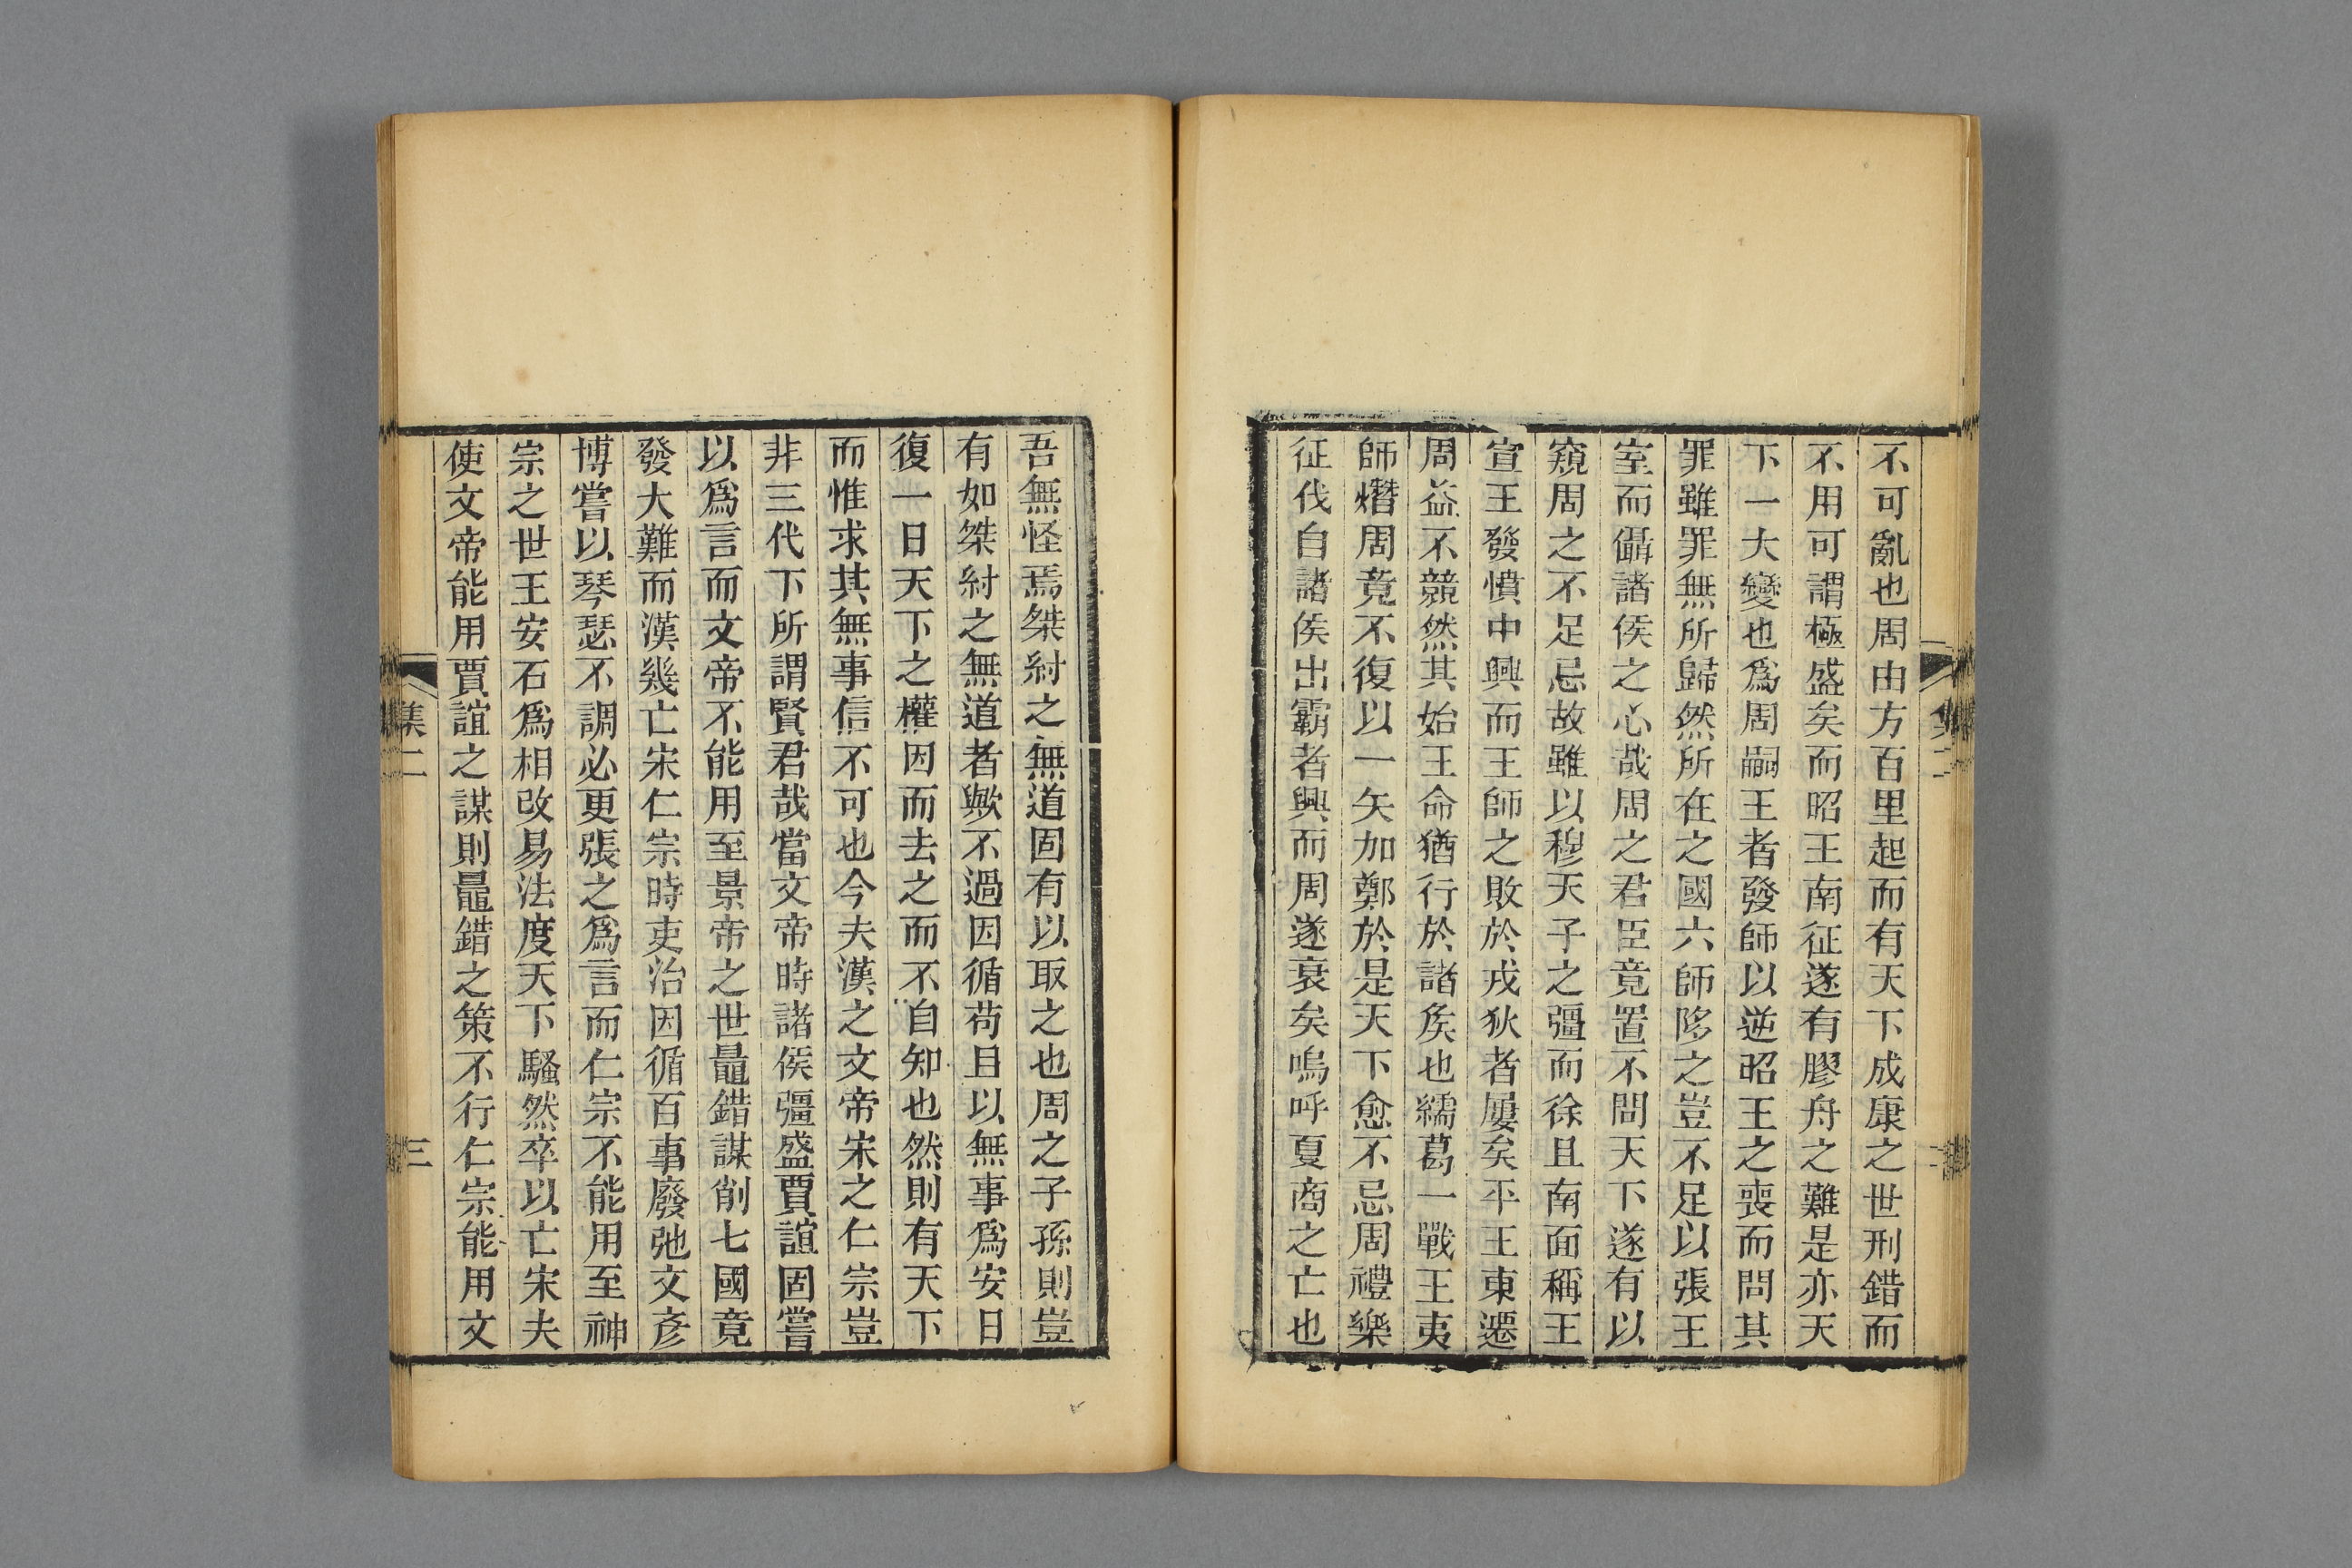 不可亂也周由方百里起而有天下成康之世刑錯而
不用可謂極盛矣而昭王南征遂有膠舟之難是亦天
下一大變也爲周嗣王者發師以逆昭王之喪而問其
罪雖罪無所歸然所在之國六師移之豈不足以張王
室而懾諸侯之心哉周之君臣竟置不問天下遂有以
窺周之不足忌故雖以穆天子之彊而徐且南面稱王
宣王發憤中興而王師之敗於戎狄者屢矣平王東遷
周益不競然其始王命猶行於諸侯也繻葛一戰王夷
師熸周竟不復以一矢加鄭於是天下愈不忌周禮樂
征伐自諸侯出霸者興而周遂衰矣嗚呼夏商之亡也
集二
吾無怪焉桀紂之無道固有以取之也周之子孫則豈
有如桀紂之無道者歟不過因循苟且以無事爲安日
復一日天下之權因而去之而不自知也然則有天下
而惟求其無事信不可也今夫漢之文帝宋之仁宗豈
非三代下所謂賢君哉當文帝時諸侯彊盛賈誼固嘗
以爲言而文帝不能用至景帝之世鼂錯謀削七國竟
發大難而漢幾亡宋仁宗時吏治因循百事廢弛文彥
博嘗以琴瑟不調必更張之爲言而仁宗不能用至神
宗之世王安石爲相改易法度天下騷然卒以亡宋夫
使文帝能用賈誼之謀則鼂錯之策不行仁宗能用文
集二
三